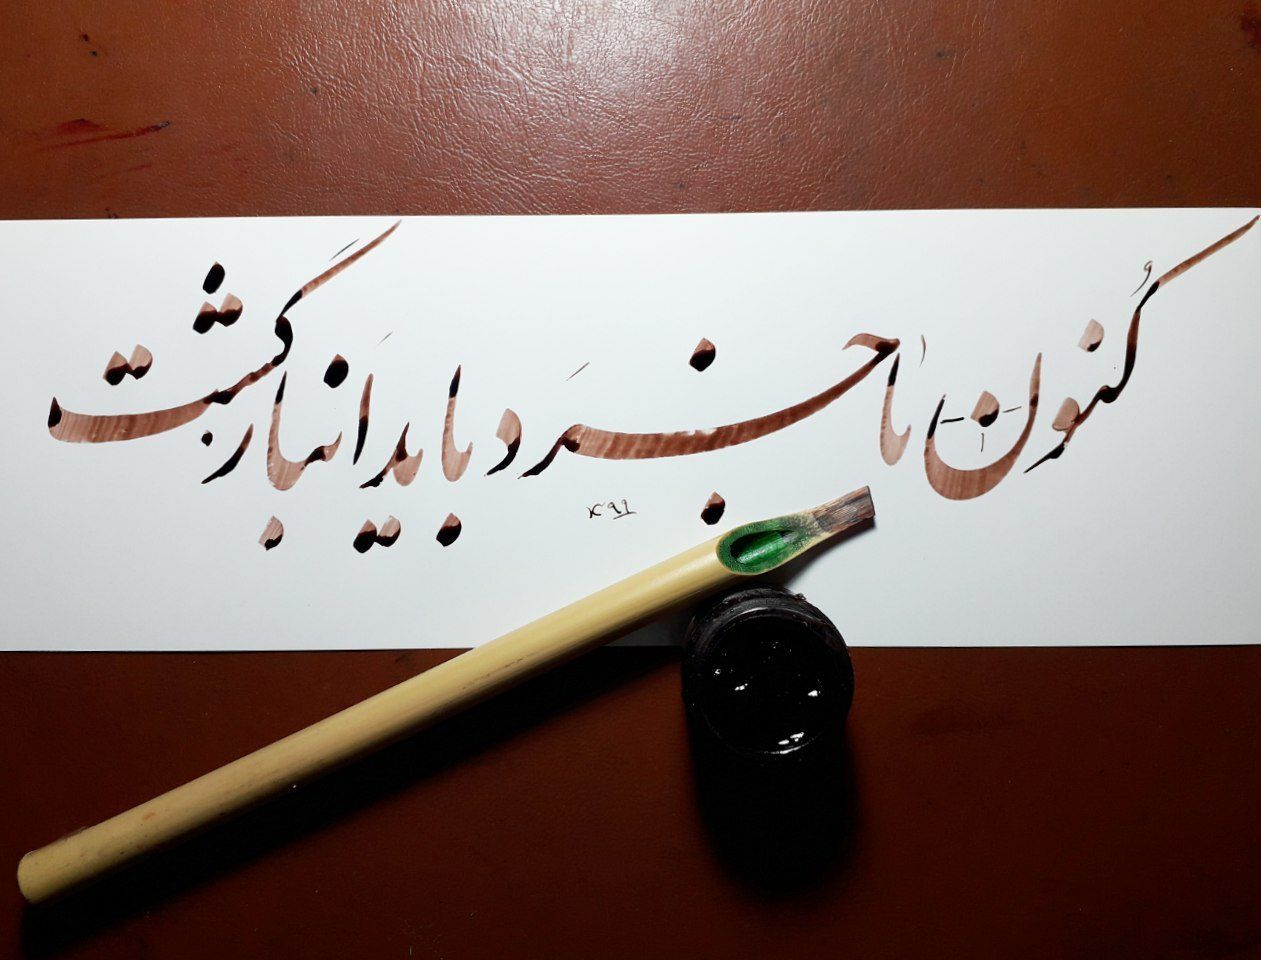 کُنون با خرَد باید انباز گشت
۹۹